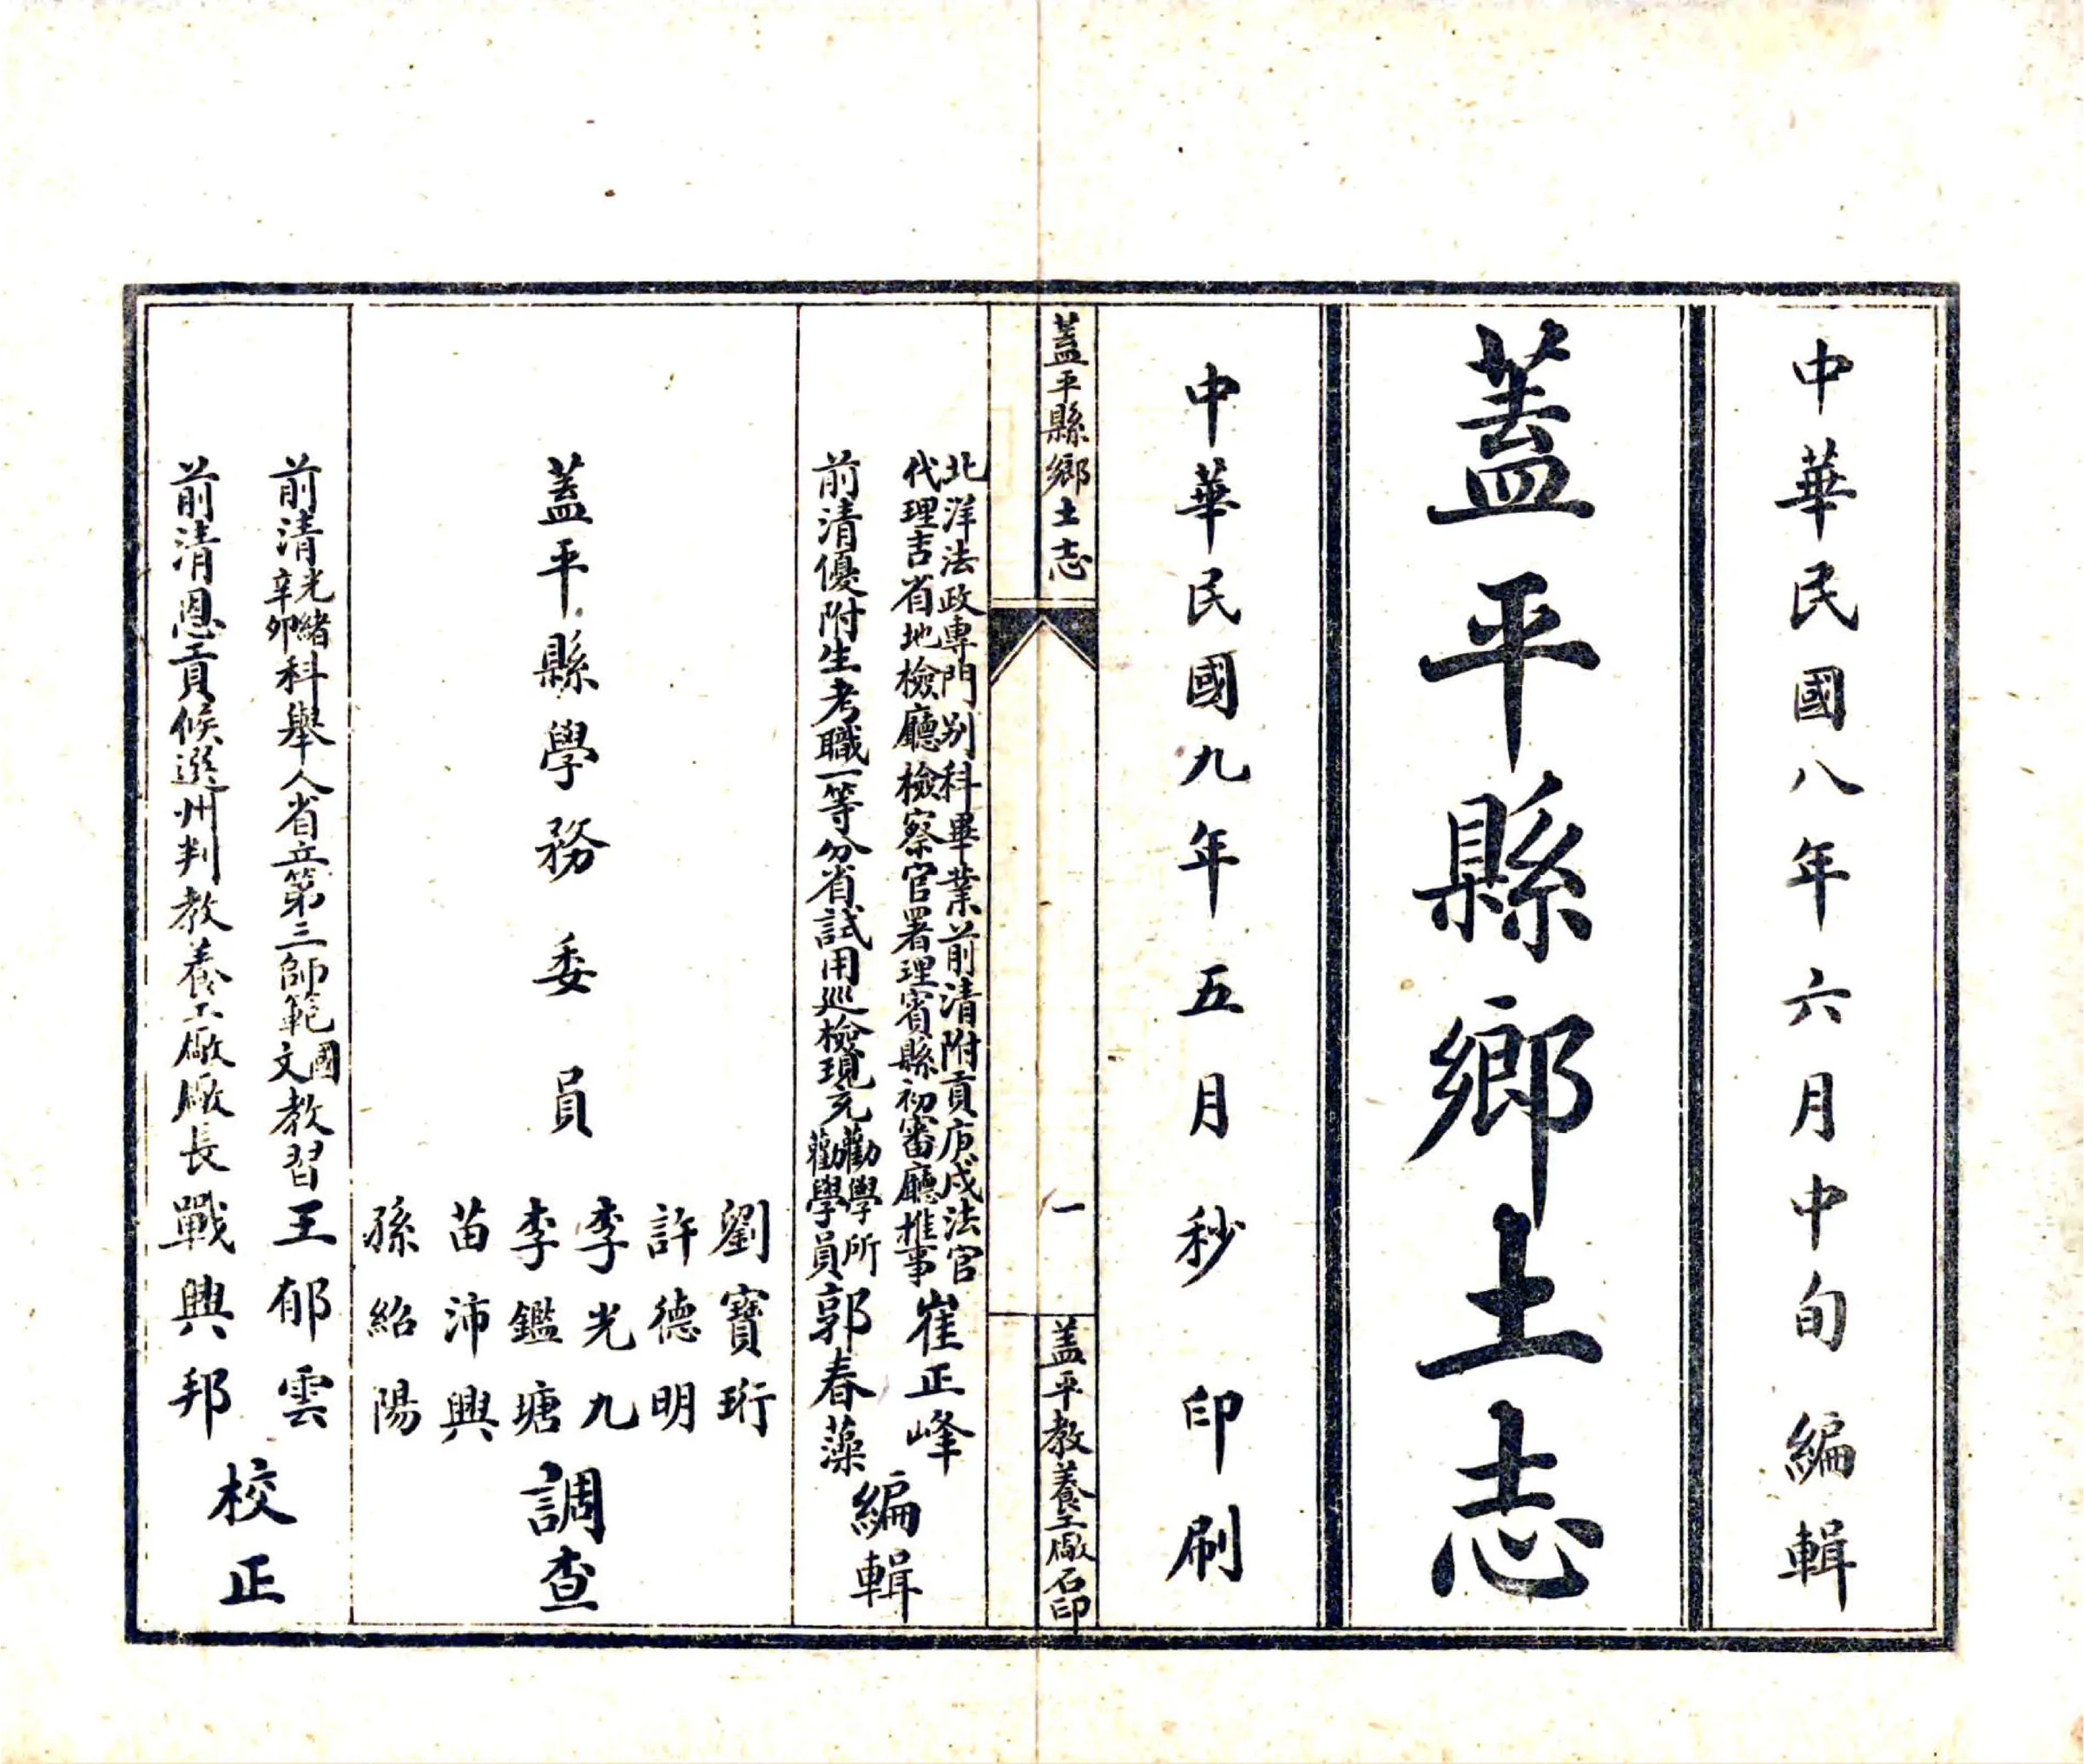 中華民國八年六月中旬編輯
蓋平縣鄉土志
中華民國九年五月秒印刷
蓋平縣鄉土志
一
蓋平教養工廠石印
北洋法政專門別科畢業前清附貢庚戌法官
代理吉省地檢廳檢察官署理賓縣初審廳推事
崔正峰
前清優附生考職一等分省試用巡檢現充勸學所
勸學員
郭春藻
編輯
蓋平縣學務委員
劉寶珩
許德明
李光九
李鑑塘
苗沛興
孫紹陽
調查
前清光緒
辛卯
科舉人省立第三師範國
文
教習
王郁雲
前清恩貢候選州判教養工廠廠長
戰興邦
校正